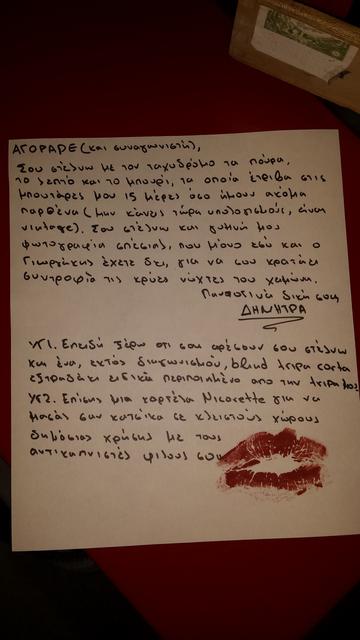 ΑΓΟΡΑΡΕ (και συναγωνιστή),
Σου στέλνω με τον ταχυδρόμο τα πούρα,
το λεπτό και το μπουρί, τα οποία έτριβα στις
μπουτάρες μου 15 μέρες όσο ήμουν ακόμα
παρθένα (μην κάνεις τώρα υπολογισμούς, είναι
vintage). Σου στέλνω και γυμνή μου
φωτογραφία επίσης, που μόνο εσύ και ο
Γιωργάκης έχετε δει, για να σου κρατάει
συντροφιά τις κρύες νύχτες του χειμώνα.
Παντοτινά δική σου,
ΔΗΜΗΤΡΑ
ΥΓ1. Επειδή ξέρω ότι σου αρέσουν σου στέλνω
και ένα, εκτός διαγωνισμού, blend tripa corta
εξτραδάκι ειδικά περιποιημένο απο την tripa μου
ΥΓ2. Επίσης μια καρτέλα Nicorette για να
μασάς σαν κατσίκα σε κλειστούς χώρους
δημόσιας χρήσης με τους
αντικαπνιστές φίλους σου